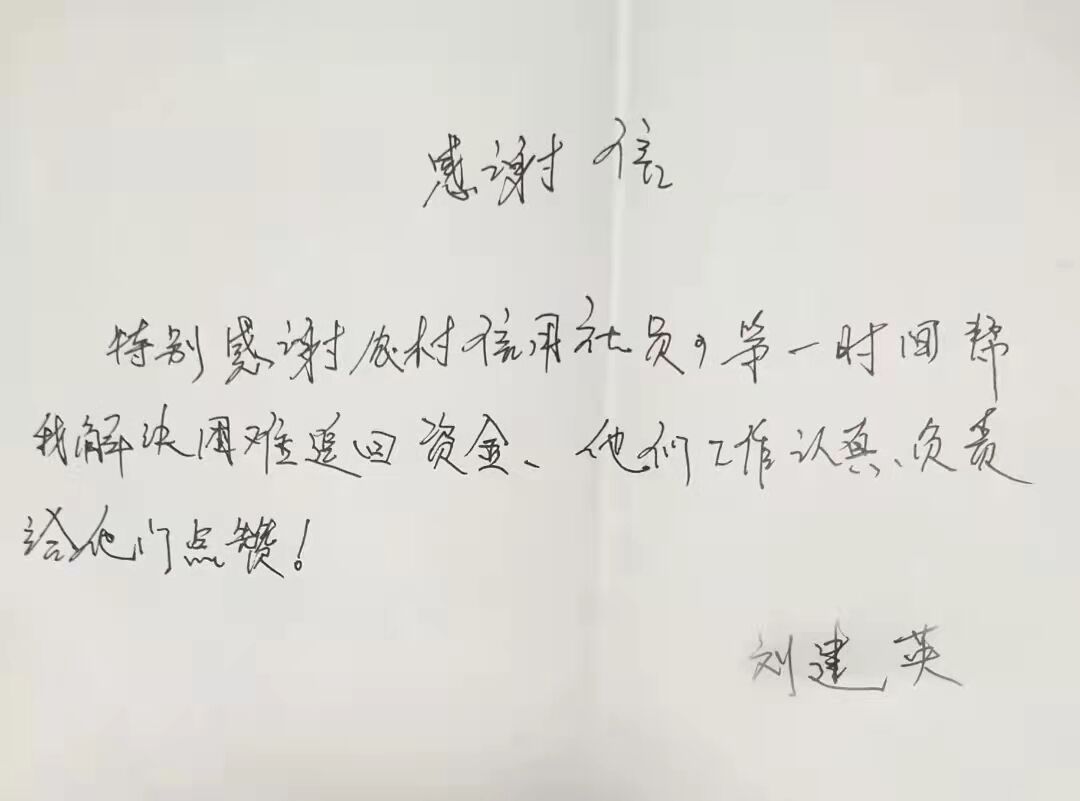 感谢信
特别感谢农村信用社员，第一时间帮
我解决困难追回资金、他们工作认真、负责
给他们点赞！
刘建英